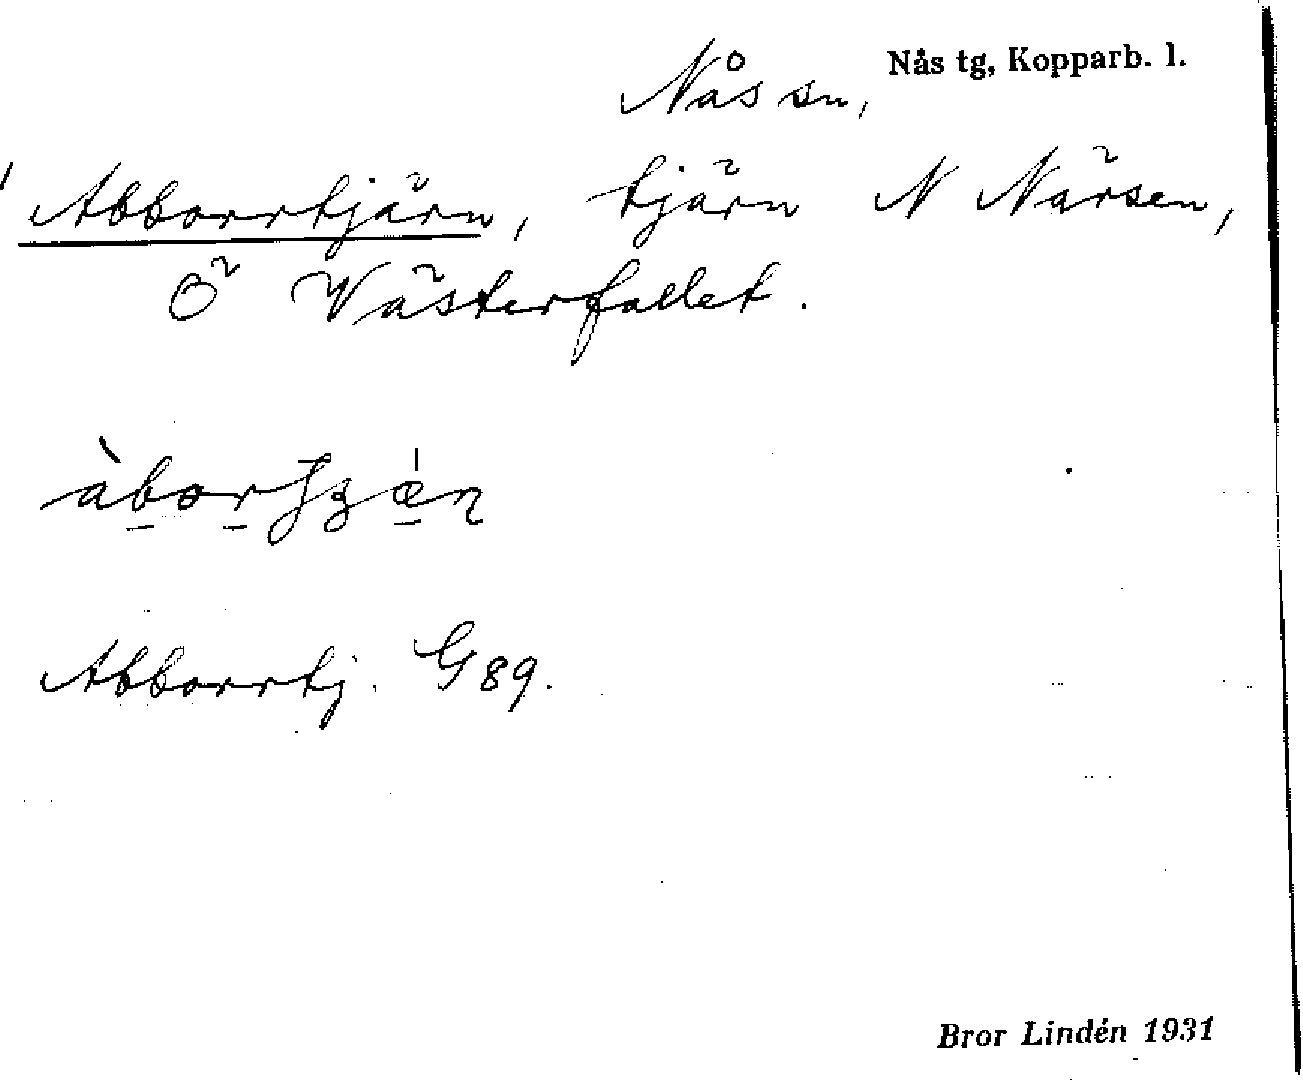 Nås tg, Kopparb. l.
Nås sn,
Abborrtjärn, tjärn N Närsen,
Ö Västerfallet.
Abborrtj. G89.
Bror Lindén 1931